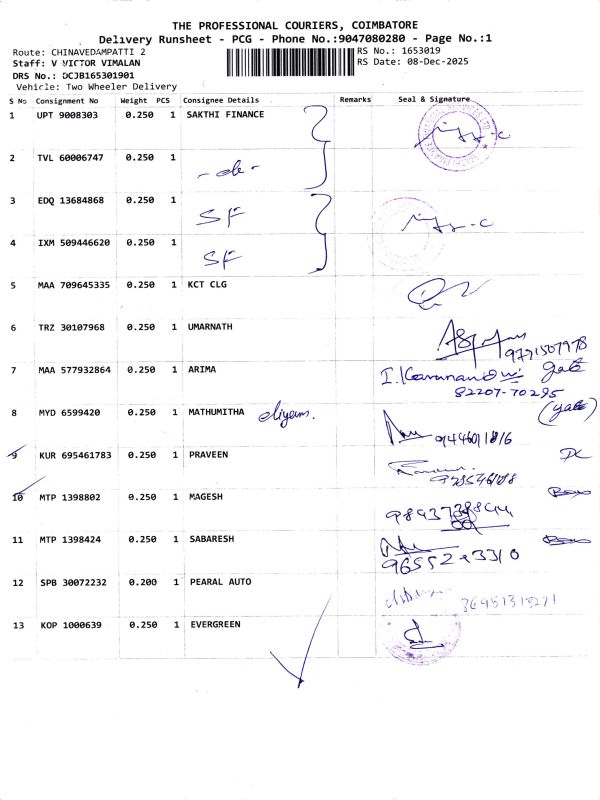 THE PROFESSIONAL COURIERS, COIMBATORE
Delivery Runsheet - PCG - Phone No.:9047080280 - Page No.:1
Route: CHINAVEDAMPATTI 2
RS No.: 1653019
Staff: V VICTOR VIMALAN
RS Date: 08-Dec-2025
DRS No.: DCJB165301901
Vehicle: Two Wheeler Delivery
S No Consignment No Weight PCS Consignee Details Remarks Seal & Signature
1 UPT 9008303 0.250 1 SAKTHI FINANCE
2 TVL 60006747 0.250 1
-do-
3 EDQ 13684868 0.250 1
SF
4 IXM 509446620 0.250 1
SF
5 MAA 709645335 0.250 1 KCT CLG
6 TRZ 30107968 0.250 1 UMARNATH
9791507978
7 MAA 577932864 0.250 1 ARIMA
82207-70295
8 MYD 6599420 0.250 1 MATHUMITHA
9 KUR 695461783 0.250 1 PRAVEEN
10 MTP 1398802 0.250 1 MAGESH
11 MTP 1398424 0.250 1 SABARESH
12 SPB 30072232 0.200 1 PEARAL AUTO
13 KOP 1000639 0.250 1 EVERGREEN